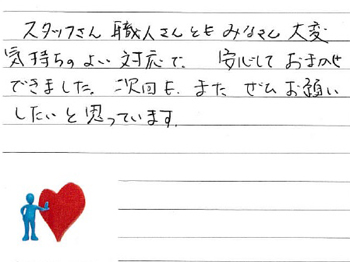 スタッフさん 職人さんとも みなさん 大変
気持ちのよい対応で、 安心して おまかせ
できました。次回も、また ぜひ お願い
したいと思っています。